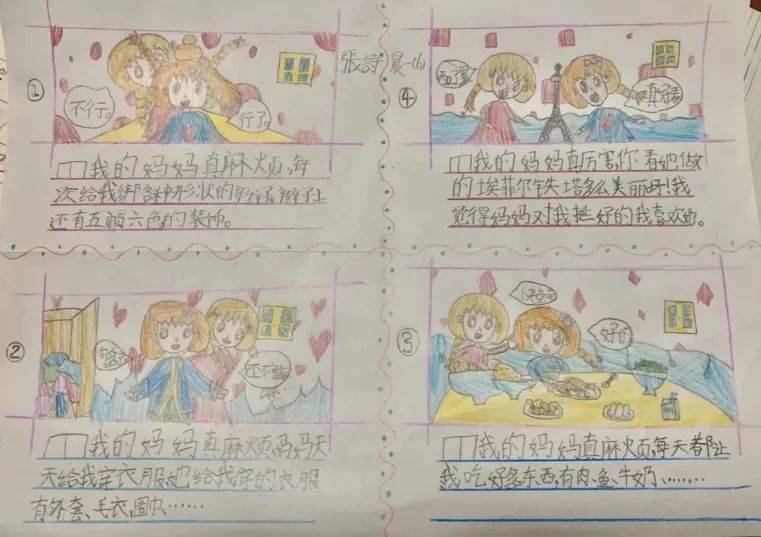 張詩晨
①
不行。
行了。
我的妈妈真麻烦,每
次给我绑各种形状的辫子,辫子上
还有五颜六色的装饰。
④
真好看
我的妈妈真厉害,你看她做
的埃菲尔铁塔多么美丽呀!我
觉得妈妈对我挺好的我喜欢她。
②
够了
还不够
我的妈妈真麻烦,妈妈天
天给我穿衣服,她给我穿的衣服
有外套、毛衣、围巾、……
③
小心点
好的
我的妈妈真麻烦,每天都让
我吃好多东西,有肉、鱼、牛奶、……